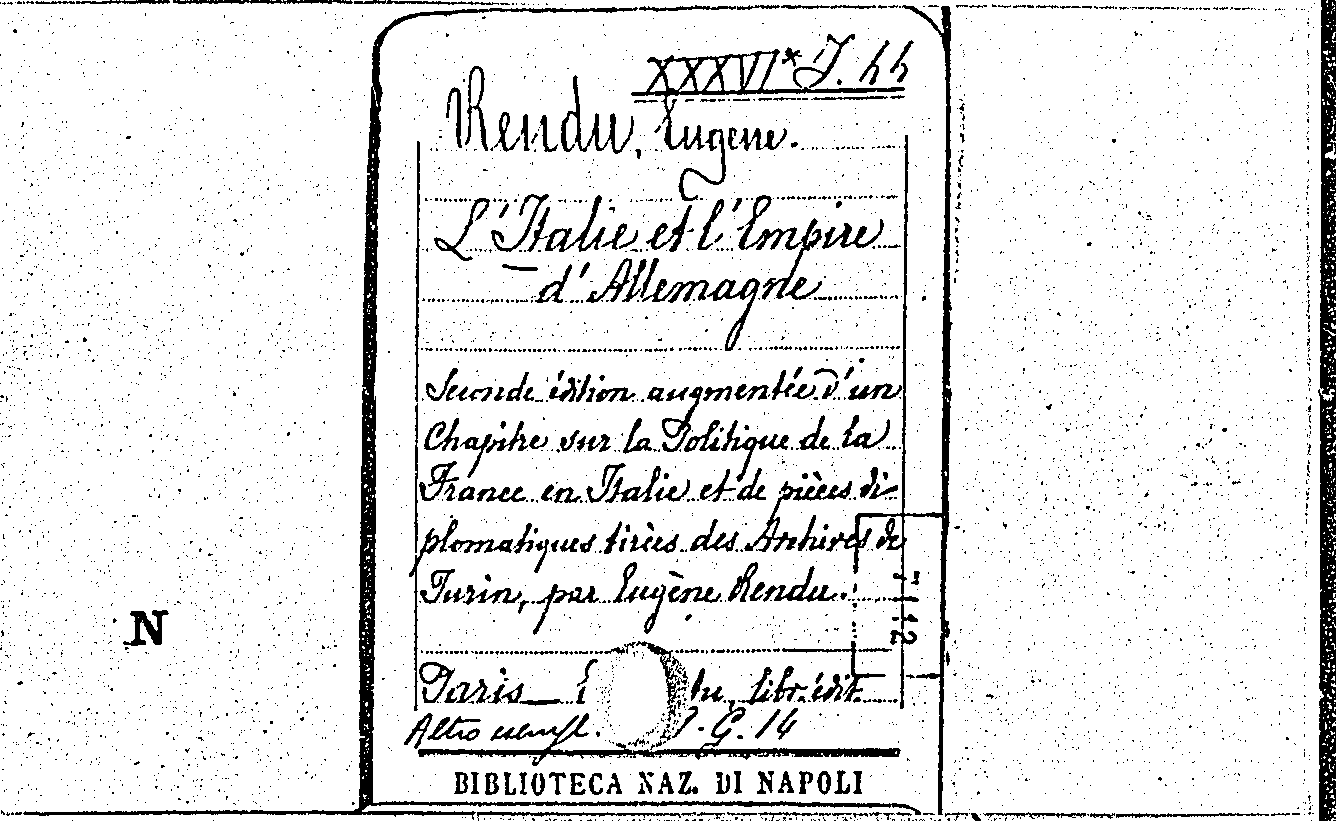 XXXVI* J. 44
Rendu, Eugene.
L'Italie et l'Empire
d'Allemagne
Seconde édition augmentée d'un
Chapitre sur la Politique de la
France en Italie et de pièces di-
plomatiques tirées des Archives de
Turin, par Eugène Rendu.
Paris libr. édit.
Altro esempl. G. 14
BIBLIOTECA NAZ. DI NAPOLI
N